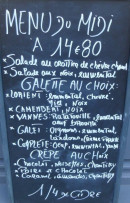 MENU du MIDI
A 14€80
Salade au crottin de chèvre chaud
Salade aux noix, emmental
GALETTE AU CHOIX
LORIENT: emmental, chèvre,
miel, noix
CAMEMBERT, NOIX
VANNES: Ratatouille,
GALEI: oignons, emmental,
COMPLETE: oeuf, emmental
CREPE AU CHOIX
Chocolat, noisettes, chantilly
Poire et chocolat
Caramel, chantilly
1/4 de Cidre